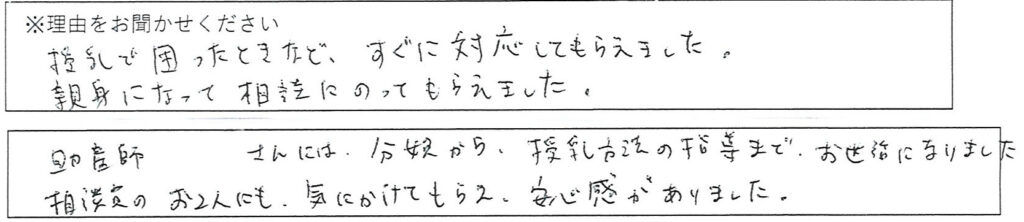 ※理由をお聞かせください
授乳で困ったときなど、すぐに対応してもらえました。
親身になって相談にのってもらえました。
助産師 さんには、分娩から、授乳方法の指導まで、お世話になりました
相談室のお2人にも、気にかけてもらえ、安心感がありました。